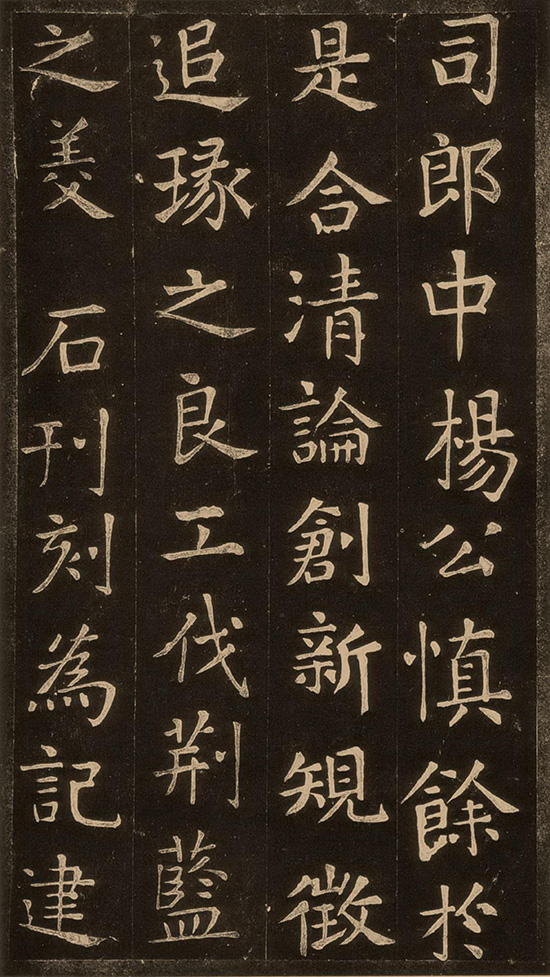 司郎中楊公慎餘於
是合清論創新規徵
追琢之良工伐荆藍
之美石刊刻為記建